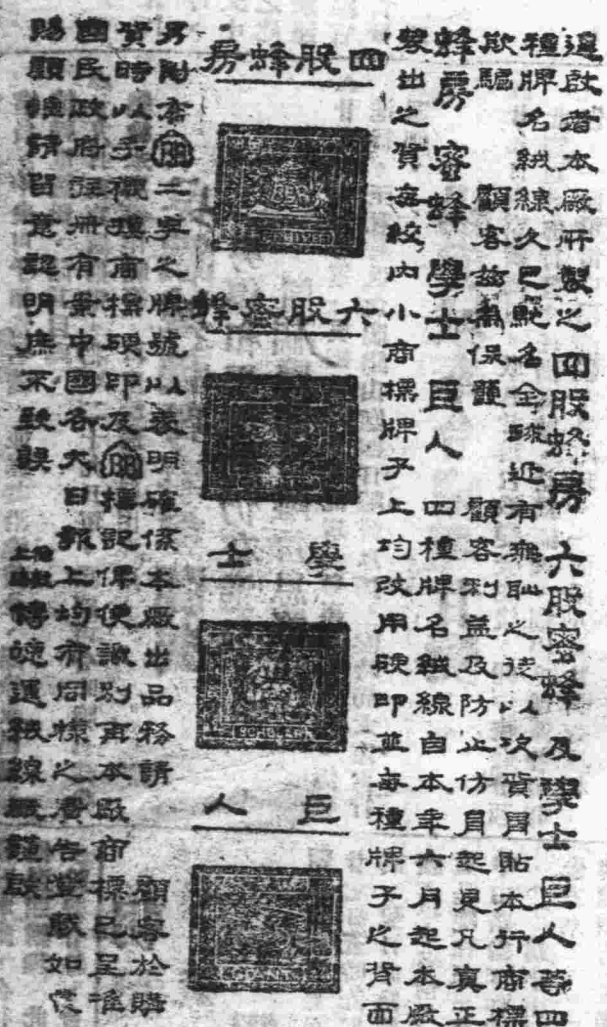 逕啟者本廠所製之四股蜂房六股密蜂及學士巨人等四
種牌名絨線久已馳名全球近有無恥之徒以次貨冒貼本行商標
欺騙顧客茲為保護顧客利益及防止仿冒起見凡真正
蜂房密蜂學士巨人四種牌名絨線自本年六月起本廠
製出之貨每絞內小商標牌子上均改用硬印並每種牌子之背面
四股蜂房
六股密蜂
學士
SCHOLAR
巨人
GIANT
另附有二字之牌號以表明確係本廠出品務請顧客於購
貨時以手攦摸商標硬印及標記俾便識別再本廠商標已呈准
國民政府註冊有案中國各大日報上均有同樣之廣告登載如蒙
賜顧務請留意認明庶不致誤
上海博德運絨線廠謹啟